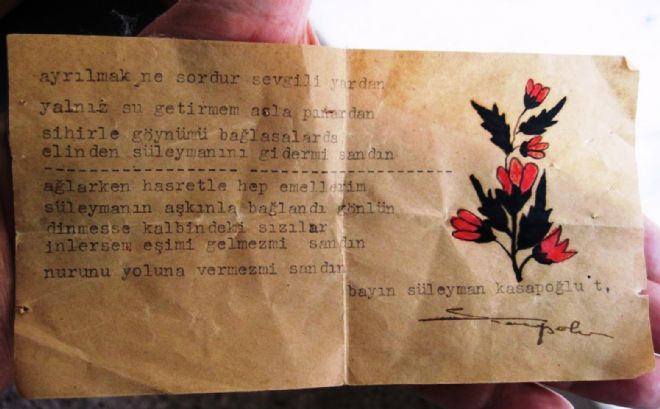 ayrılmak ne sordur sevgili yardan
yalnız su getirmem asla pınardan
sihirle göynümü bağlasalarda
elinden süleymanını gidermi sandın
ağlarken hasretle hep emellerim
süleymanın aşkınla bağlandı gönlün
dinmesse kalbindeki sızılar
inlersem eşimi gelmezmi sandın
nurunu yoluna vermezmi sandin
bayın süleyman kasapoğlu t.